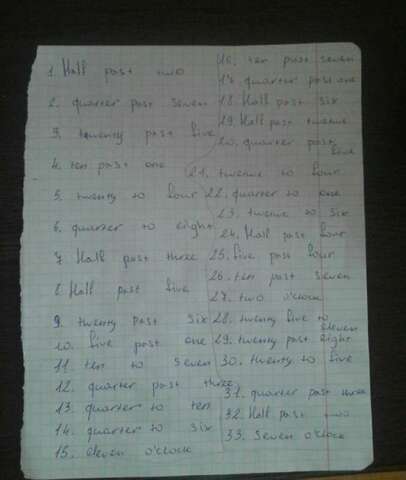 1. Half past two
2. quarter past seven
3. twenty past five
4. ten past one
5. twenty to four
6. quarter to eight
7. Half past three
8. Half past five
9. twenty past six
10. five past one
11. ten to seven
12. quarter past three
13. quarter to ten
14. quarter to six
15. eleven o'clock
16. ten past seven
17. quarter past one
18. Half past six
19. Half past twelve
20. quarter past five
21. twenty to four
22. quarter to one
23. twenty to six
24. Half past four
25. five past four
26. ten past seven
27. two o'clock
28. twenty five to eleven
29. twenty past eight
30. twenty to five
31. quarter past three
32. Half past two
33. Seven o'clock